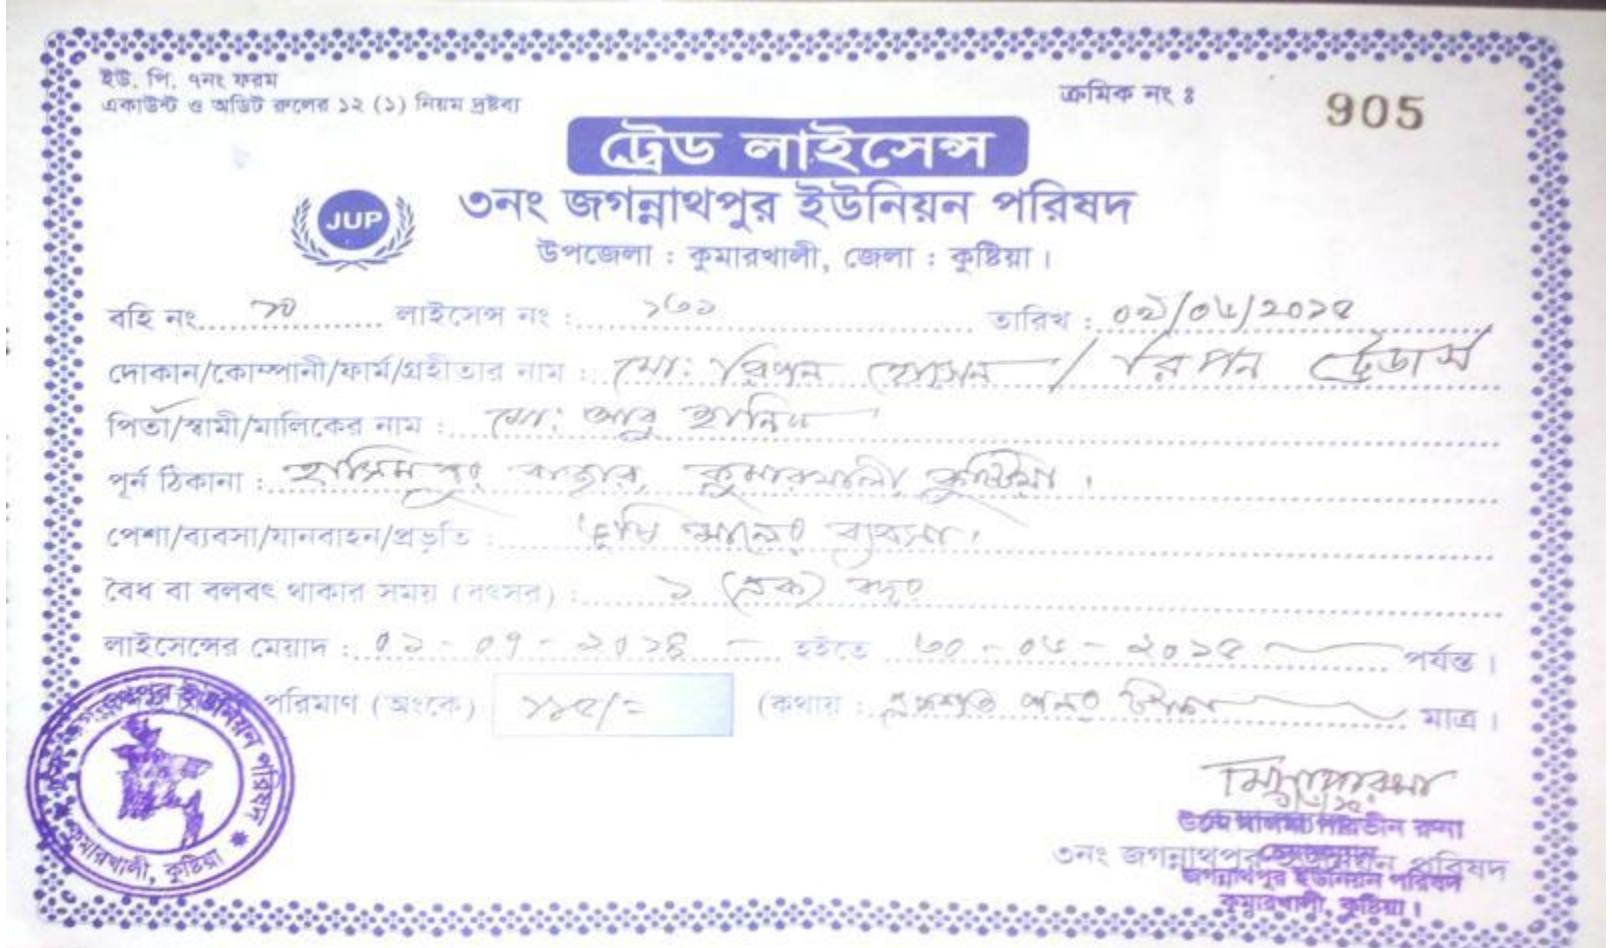 ইউ. পি. ৭নং ফরম
একাউন্ট ও অডিট রুলের ১২ (১) নিয়ম দ্রষ্টব্য
ক্রমিক নং ঃ 905
ট্রেড লাইসেন্স
JUP
৩নং জগন্নাথপুর ইউনিয়ন পরিষদ
উপজেলা : কুমারখালী, জেলা : কুষ্টিয়া।
বহি নং লাইসেন্স নং : ১৬১ তারিখ : ০১/০৬/২০১৫
দোকান/কোম্পানী/ফার্ম/গ্রহীতার নাম : মো: রিপন হোসেন / রিপন ট্রেডার্স
পিতা/স্বামী/মালিকের নাম : মো: আবু হানিফ
পূর্ন ঠিকানা : হাসিমপুর বাজার, কুমারখালী, কুষ্টিয়া।
পেশা/ব্যবসা/যানবাহন/প্রভৃতি : ভূষি মালের ব্যবসা।
বৈধ বা বলবৎ থাকার সময় (বৎসর) : ১ (এক) বছর
লাইসেন্সের মেয়াদ : ০১-০৭-২০১৪ হইতে ৩০-০৬-২০১৫ পর্যন্ত।
পরিমাণ (অংকে) ১১৫/= (কথায় : একশত পনর টাকা মাত্র।
ইউনিয়ন পরিষদ
কুমারখালী, কুষ্টিয়া
রুনা
৩নং জগন্নাথপুর ইউনিয়ন পরিষদ
জগন্নাথপুর ইউনিয়ন পরিষদ
কুমারখালী, কুষ্টিয়া।